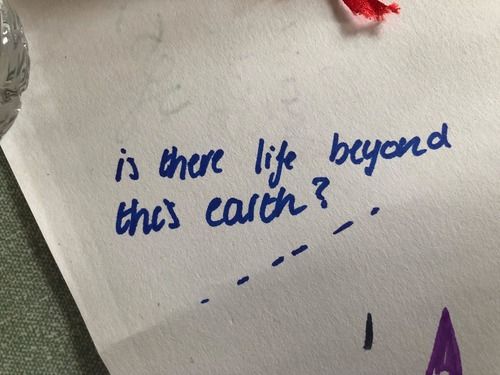 is there life beyond
this earth?